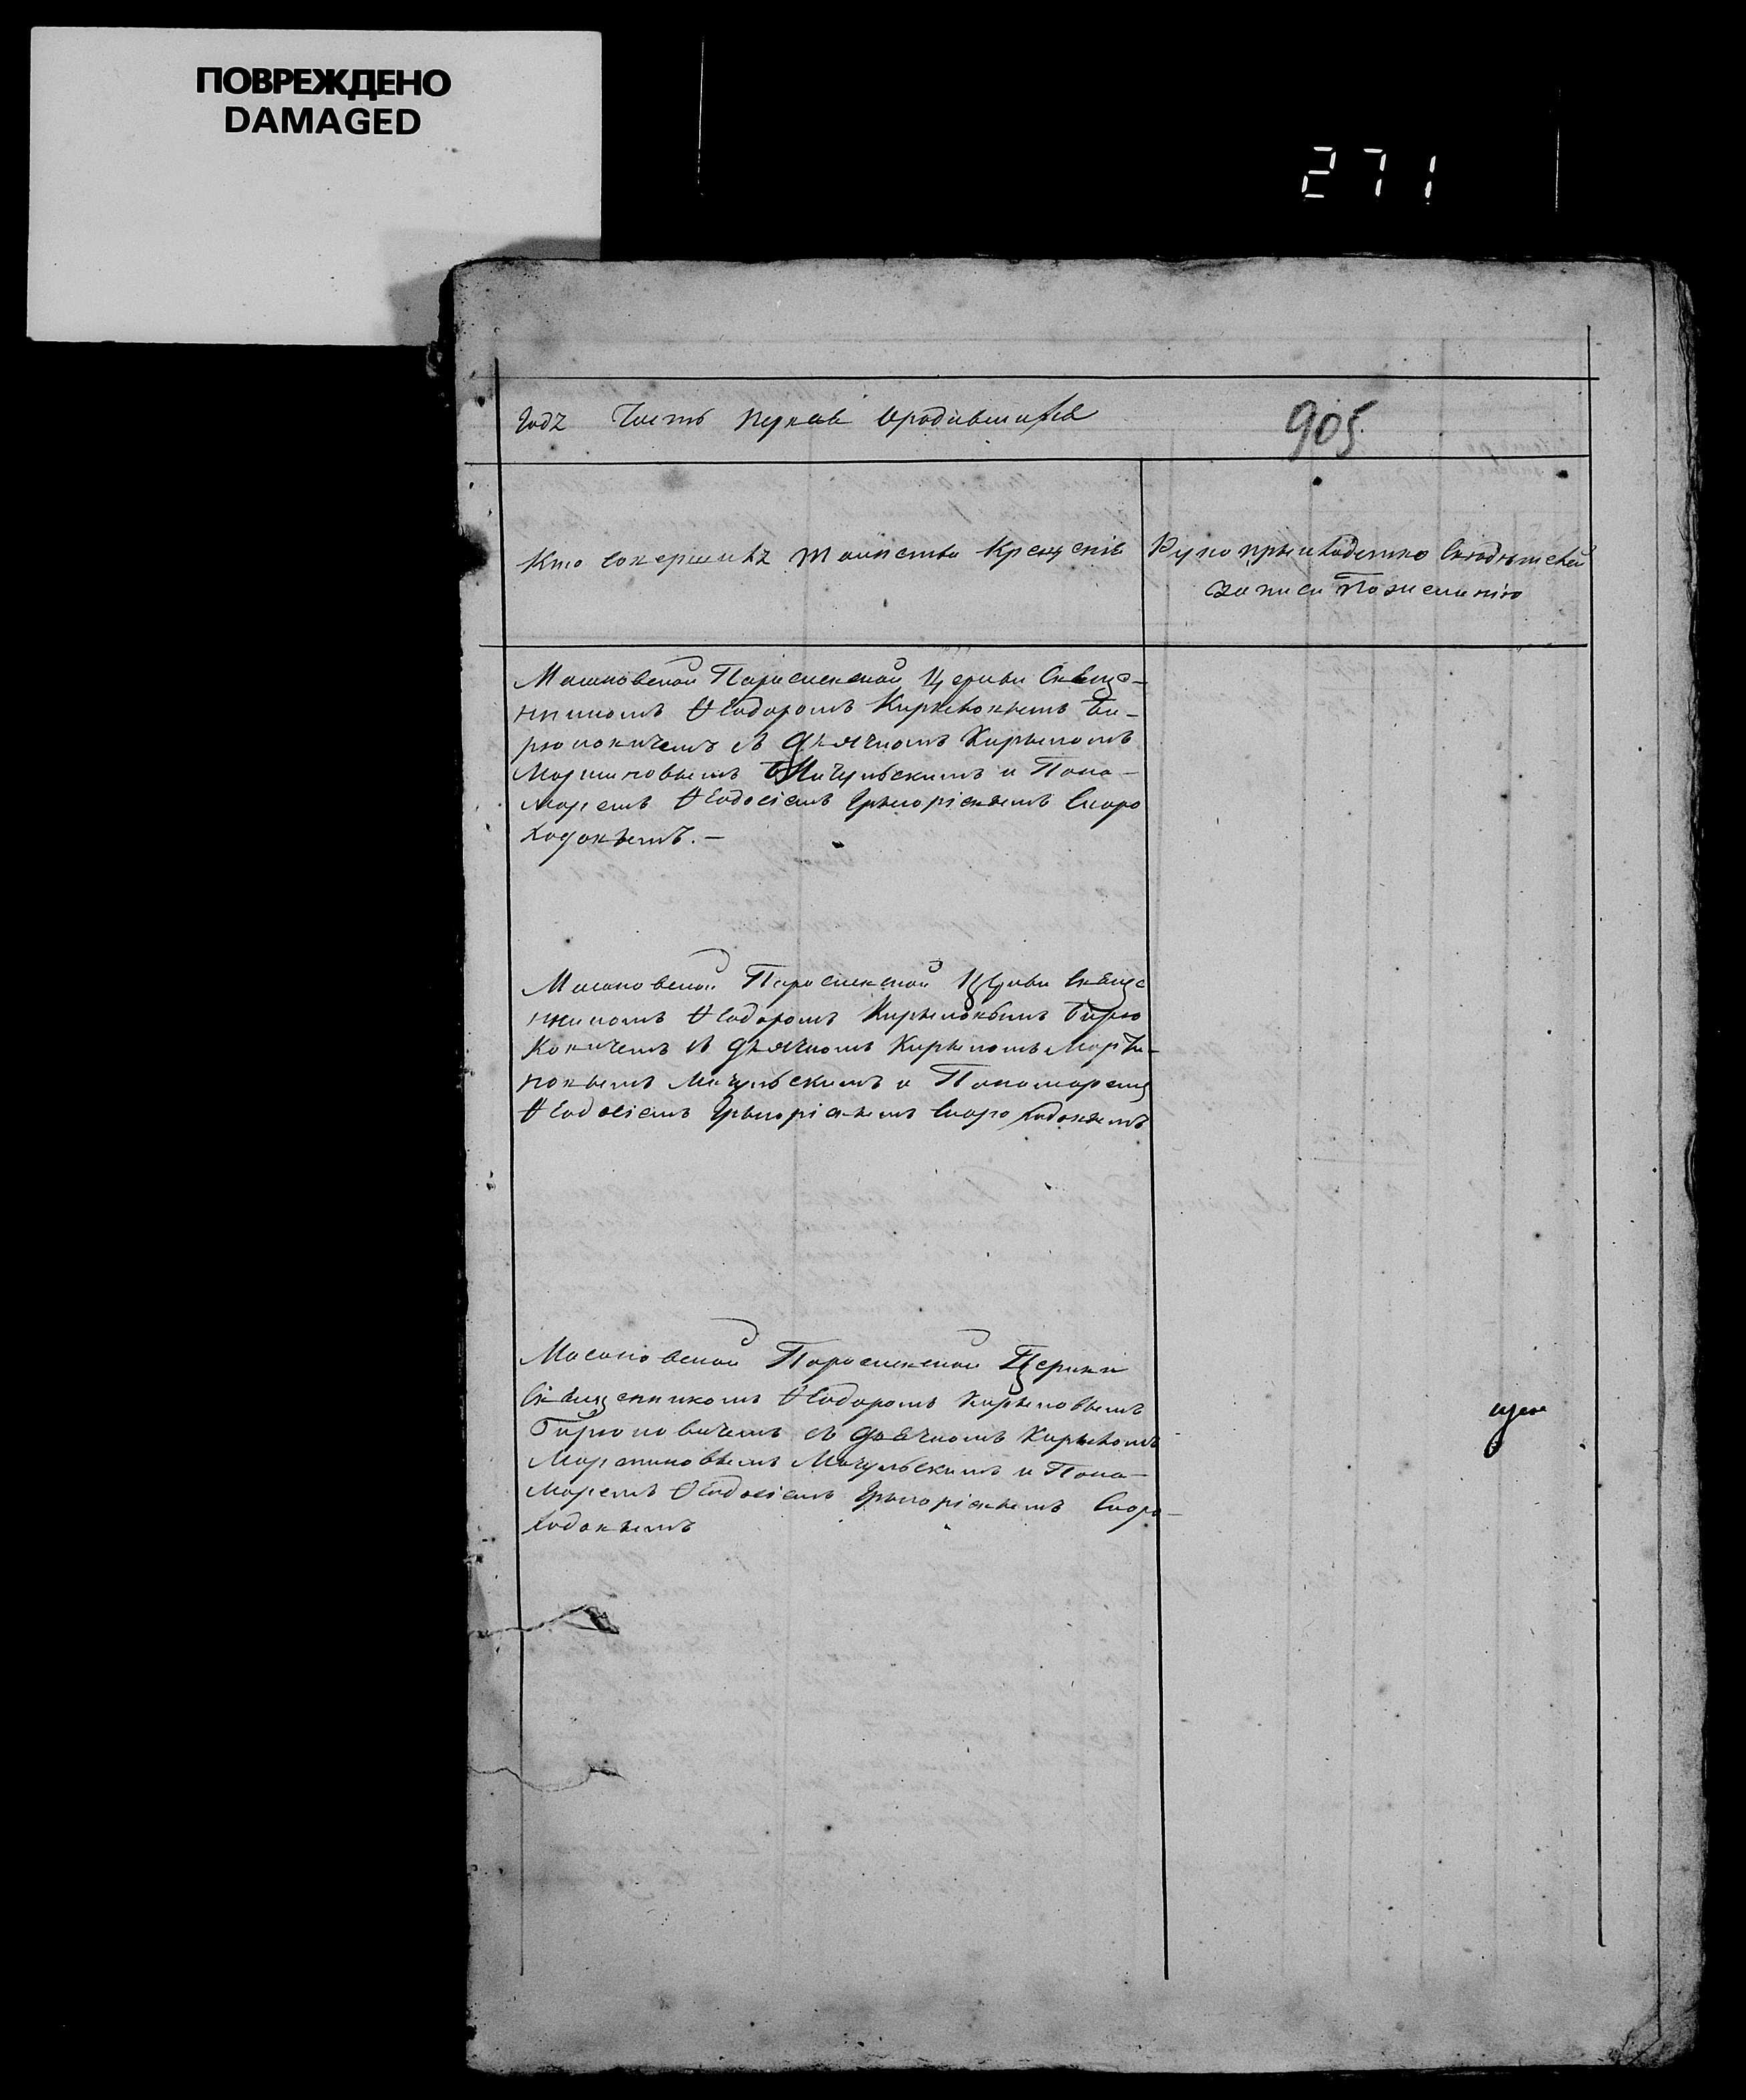 ПОВРЕЖДЕНО
DAMAGED
271
Годъ Часть первая Ородившихся
905
Кто совершалъ таинство крещенія
Рукоприкладство Свидѣтелей
записи По желанію
Параскевской Церкви Свяще-
нникомъ Ѳеодоромъ Кириловымъ Би-
рюковичемъ съ Дьячкомъ Кириломъ
Мартиновымъ Мачульскимъ и Поно-
маремъ Ѳеодосіемъ Григоріевымъ Скоро
ходовымъ.—
Масановской Параскевской Церкви Свяще
нникомъ Ѳеодоромъ Кириловымъ Бирю
ковичемъ съ Дьячкомъ Кириломъ Марти-
новымъ Мачульскимъ и Пономаремъ
Ѳеодосіемъ Григоріевымъ Скороходовымъ
Масановской Параскевской Церкви
Священникомъ Ѳеодоромъ Кириловымъ
Бирюковичемъ съ Дьячкомъ Кириломъ
Мартиновымъ Мачульскимъ и Поно-
маремъ Ѳеодосіемъ Григоріевымъ Скоро-
ходовымъ